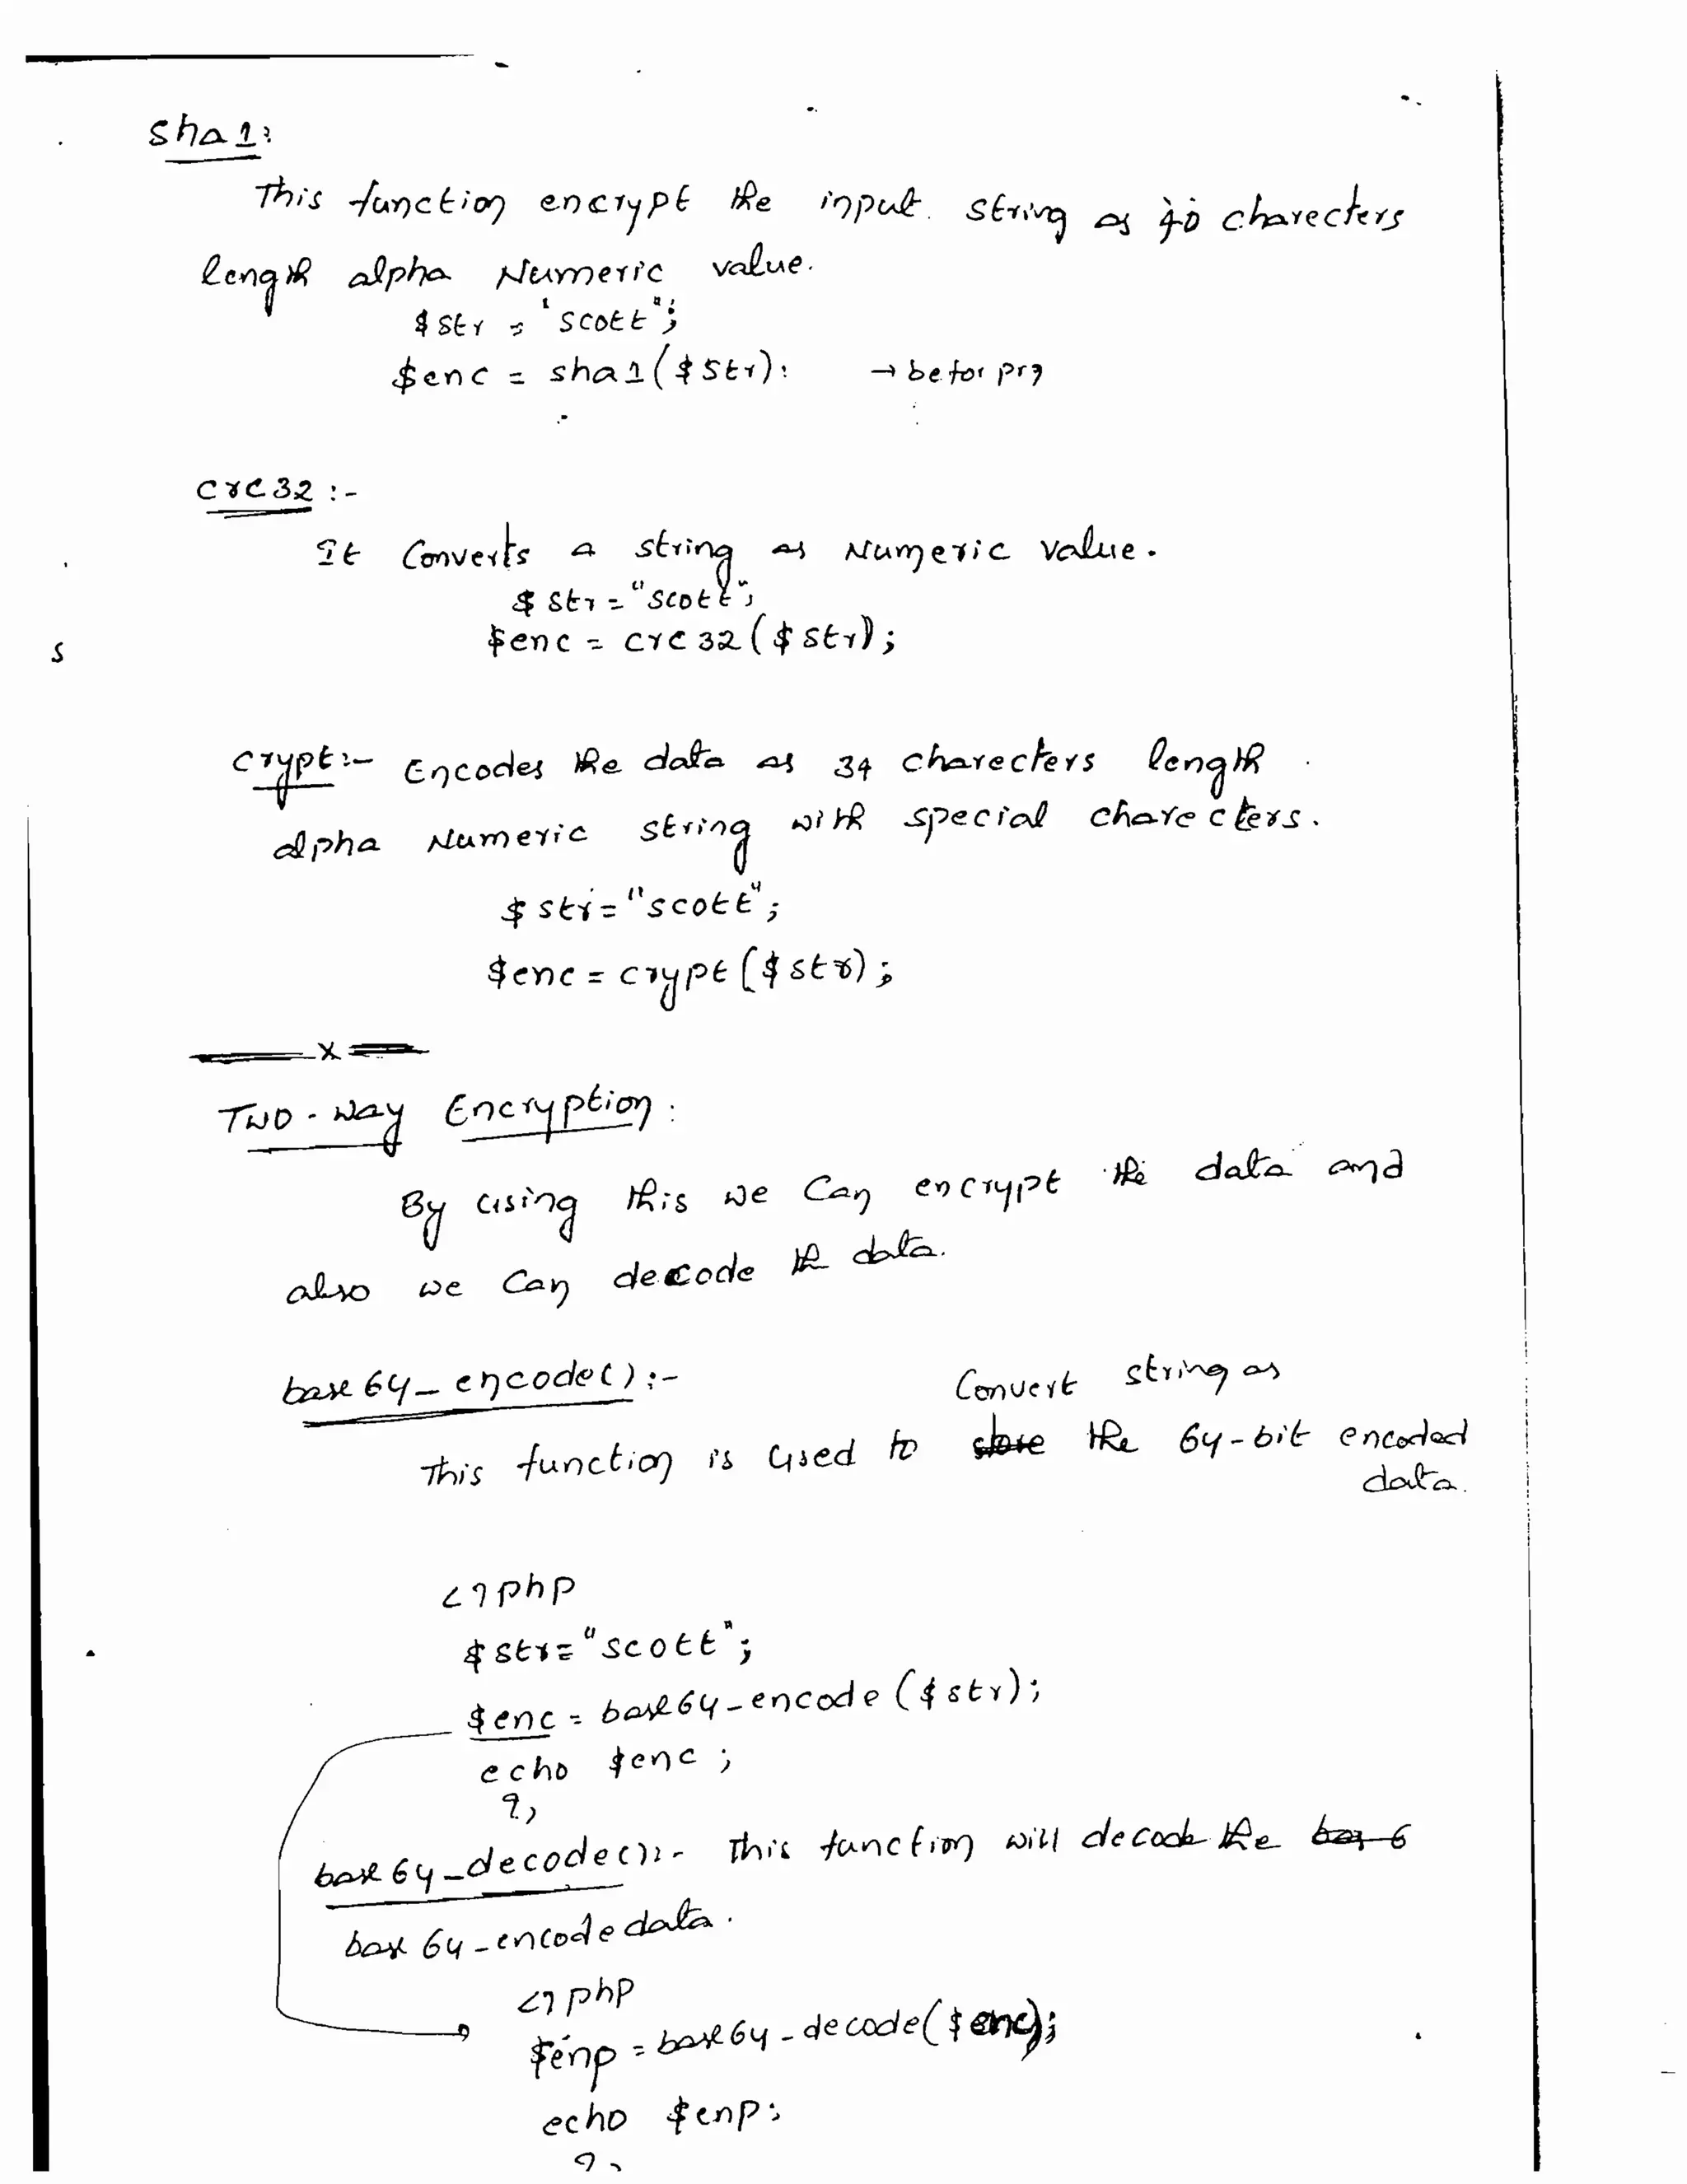 sha1:
This function encrypt the input string as 40 charecters
length alpha Numeric value.
$str = "scott";
$enc = sha1($str); → befor prg
crc32 :-
It Converts a string as Numeric value.
$str = "scott";
s
$enc = crc32($str);
crypt:- Encodes the data as 34 charecters length
alpha Numeric string with special charecters.
$str = "scott";
$enc = crypt($str);
x
Two-way Encryption:
By using this we Can encrypt the data and
also we Can decode the data.
base64_encode():- Convert string as
This function is used to store the 64-bit encoded
data.
<?php
$str = "scott";
$enc = base64_encode($str);
echo $enc;
?>
base64_decode():- This function will decode the bas 6
base 64_encode data.
<?php
$enp = base64_decode($enc);
echo $enp;
?>